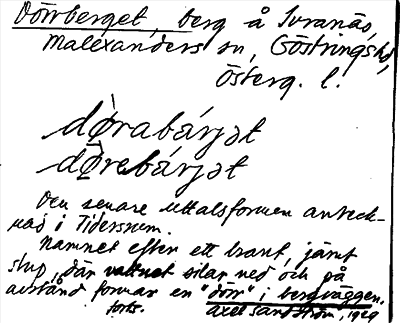 Dörrberget, berg å Svanäs,
Malexanders sn, Göstrings hd,
Österg. l.
dø̀rabárjət
dø̀rebárjət
Den senare uttalsformen anteck-
nad i Tidersrum.
Namnet efter ett brant, jämt
stup, där vattnet silar ned och på
avstånd formar en "dörr" i bergväggen.
forts. Axel Sandström, 1929